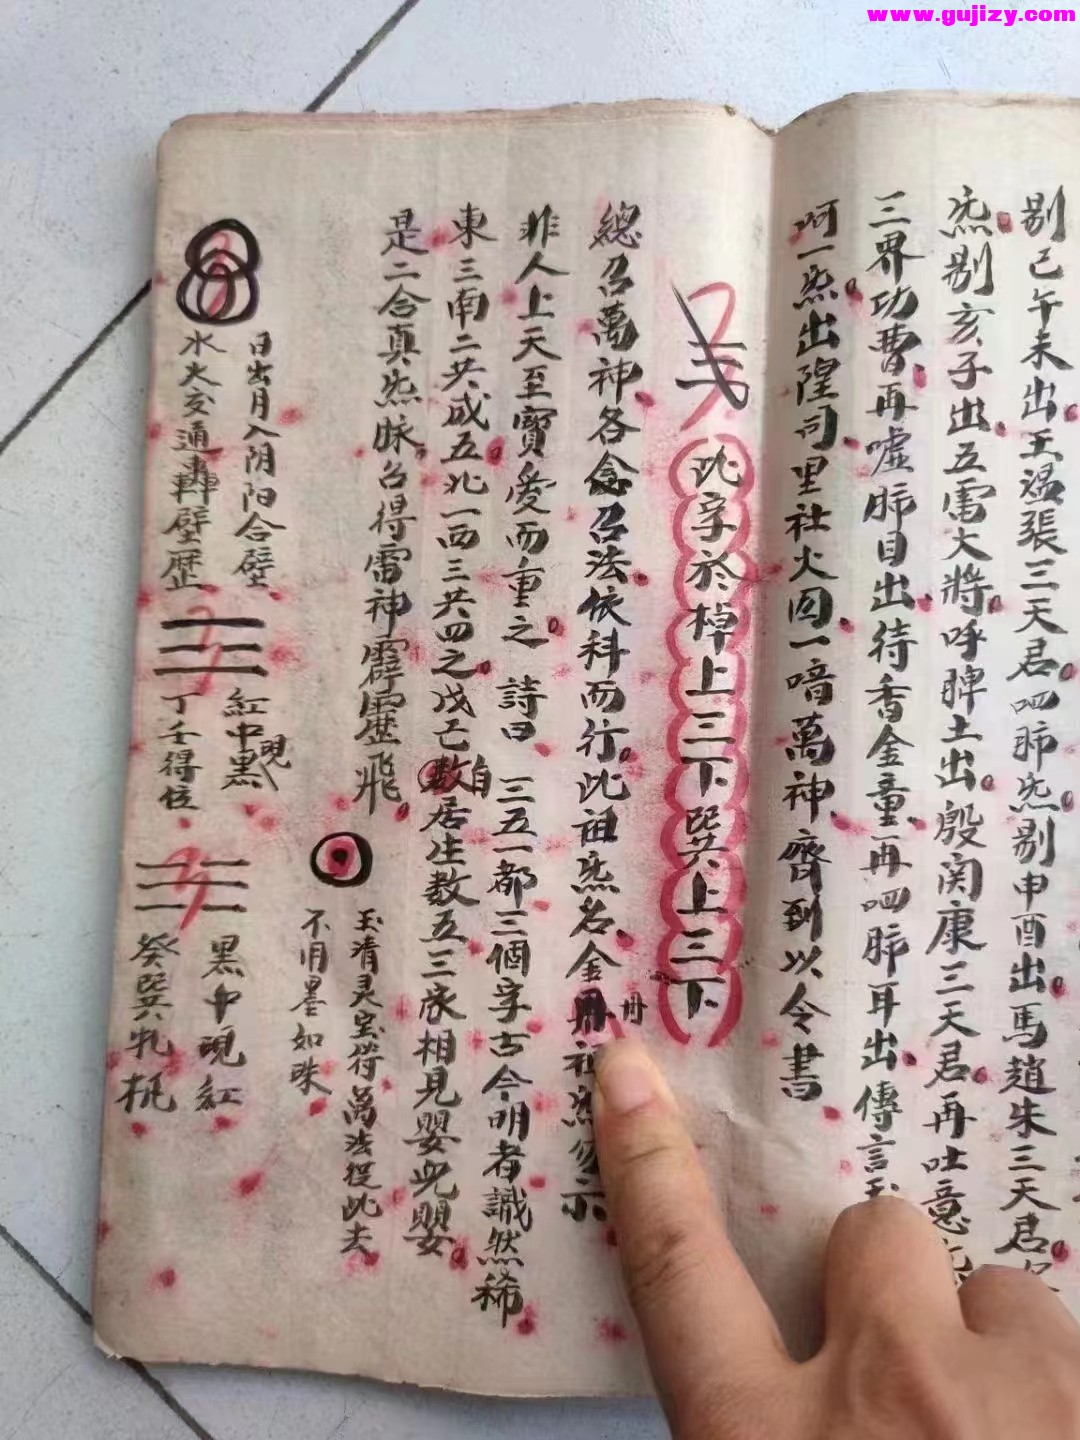 www.gujizy.com
剔巳午未出王温張三天君呬肺炁剔申酉出馬趙朱三天君
炁剔亥子出五雷大將呼脾土出殷関康三天君再吐意
三界功曹再噓肺目出待香金童再呬肺耳出傳言玉
呵一炁出隍司里社火囚一喑萬神齊到以令書
此字於棹上三下巽上三下
總召萬神各念召法依科而行此祖炁名金冊祖炁勿示
冊
非人上天至寶愛而重之 詩曰 三五一都三個字古今明者識然稀
東三南二共成五北一四三共四之戊己數居生數五三家相見嬰児嬰
自
是二合真炁脉召得雷神霹靂飛
玉清灵宝符萬法從此去
不用墨如硃
日出月入阴阳合壁
水火交通轟壁歴
紅中黑
現
丁壬得位
黑中現紅
癸巽牝